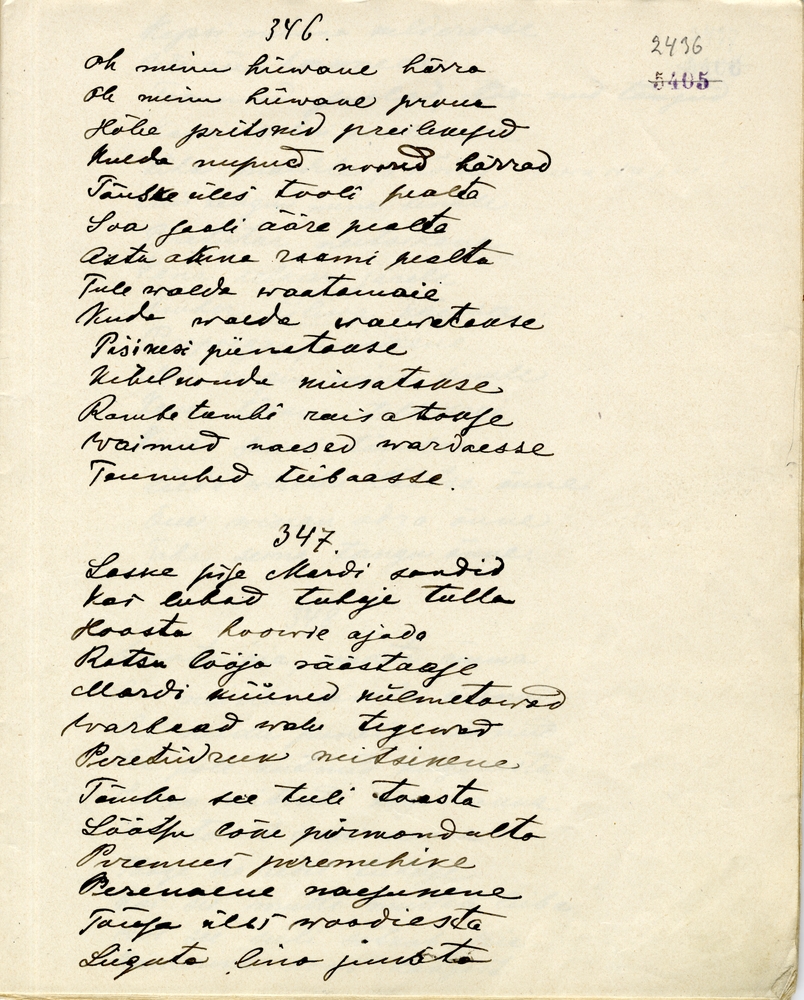 346.
2436
5405
Oh minu hüwane härra
Oh minu hüwane proua
Hõbe pritskid preilingid
Kulda nupud noored härrad
Tõuske üles tooli pealta
Soa gooli ääre pealta
Astu akna raami pealta
Tule walda waatamaie
Kuda walda waewatasse
Pisikesi piinatasse
Kihelkonda kiusatasse
Rambe tambi raisatasse
Waimud naesed wardaesse
Teenuhed teibaasse.
347.
Laske sisse Mardi sandid
Kas lubad tubaje tulla
Hoosta hoowie ajada
Ratsu lööja räästaaje
Mardi küüned külmetawad
Warbaad walu tegewad
Peretüdruk neitsikene
Tõmba see tuli toasta
Lõõtsu lõke põrmandulta
Peremees peremehike
Perenaene naesukene
Tõuse üles woodiesta
Liiguta lina juusta